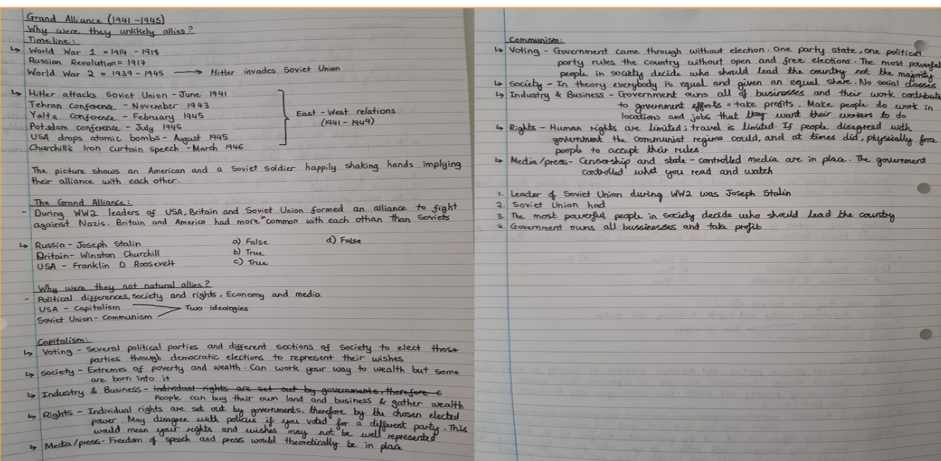 Grand Alliance (1941-1945)
Why were they unlikely allies?
Timeline:
↳ World War 1 = 1914 - 1918
Russian Revolution = 1917
World War 2 = 1939 - 1945 → Hitler invades Soviet Union
↳ Hitler attacks Soviet Union - June 1941
Tehran Conference - November 1943
Yalta Conference - February 1945
Potsdam conference - July 1945
USA drops atomic bombs - August 1945
Churchill's Iron curtain speech - March 1946
East - West relations
(1941 - 1949)
The picture shows an American and a Soviet soldier happily shaking hands implying
their alliance with each other.
The Grand Alliance:
- During WW2 leaders of USA, Britain and Soviet Union formed an alliance to fight
against Nazis. Britain and America had more common with each othan than Soviets
↳ Russia - Joseph Stalin a) False d) False
Britain - Winston Churchill b) True
USA - Franklin D Roosevelt c) True
Why were they not natural allies?
- Political differences, society and rights, Economy and media
USA - Capitalism
Soviet Union - Communism
Two ideologies
Capitalism:
↳ Voting - Several political parties and different sections of society to elect those
parties through democratic elections to represent their wishes
↳ society - Extremes of poverty and wealth. Can work your way to wealth but some
are born into it
↳ Industry & Business - individual rights are set out by governments, therefore
People can buy their own land and business & gather wealth
↳ Rights - Individual rights are set out by governments, therefore by the chosen elected
power. May disagree with policies if you voted for a different party. This
would mean your rights and wishes may not be well represented
↳ Media/press - Freedom of speech and press would theoretically be in place
Communism:
↳ Voting - Government came through without election. One party state, one political
party rules the country without open and free elections. The most powerful
people in society decide who should lead the country not the majority
↳ Society - In theory everybody is equal and given an equal share. No social classes
↳ Industry & Business - Government owns all of businesses and their work contribute
to government efforts + take profits. Make people do work in
locations and jobs that they want their workers to do
↳ Rights - Human rights are limited; travel is limited. If people disagreed with
government the communist regime could, and at times did, physically force
people to accept their rules
↳ Media/press - Censorship and state - controlled media are in place. The government
controlled what you read and watch
1. Leader of Soviet Union during WW2 was Joseph Stalin
2. Soviet Union had
3. The most powerful people in society decide who should lead the country
4. Government owns all bussinesses and take profit